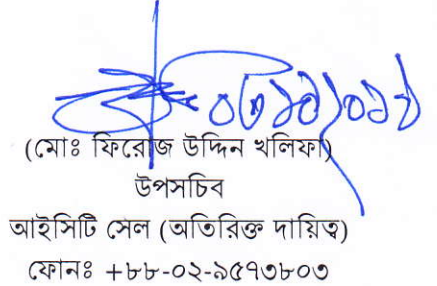 (মোঃ ফিরোজ উদ্দিন খলিফা)
উপসচিব
আইসিটি সেল (অতিরিক্ত দায়িত্ব)
ফোনঃ +৮৮-০২-৯৫৭৩৮০৩